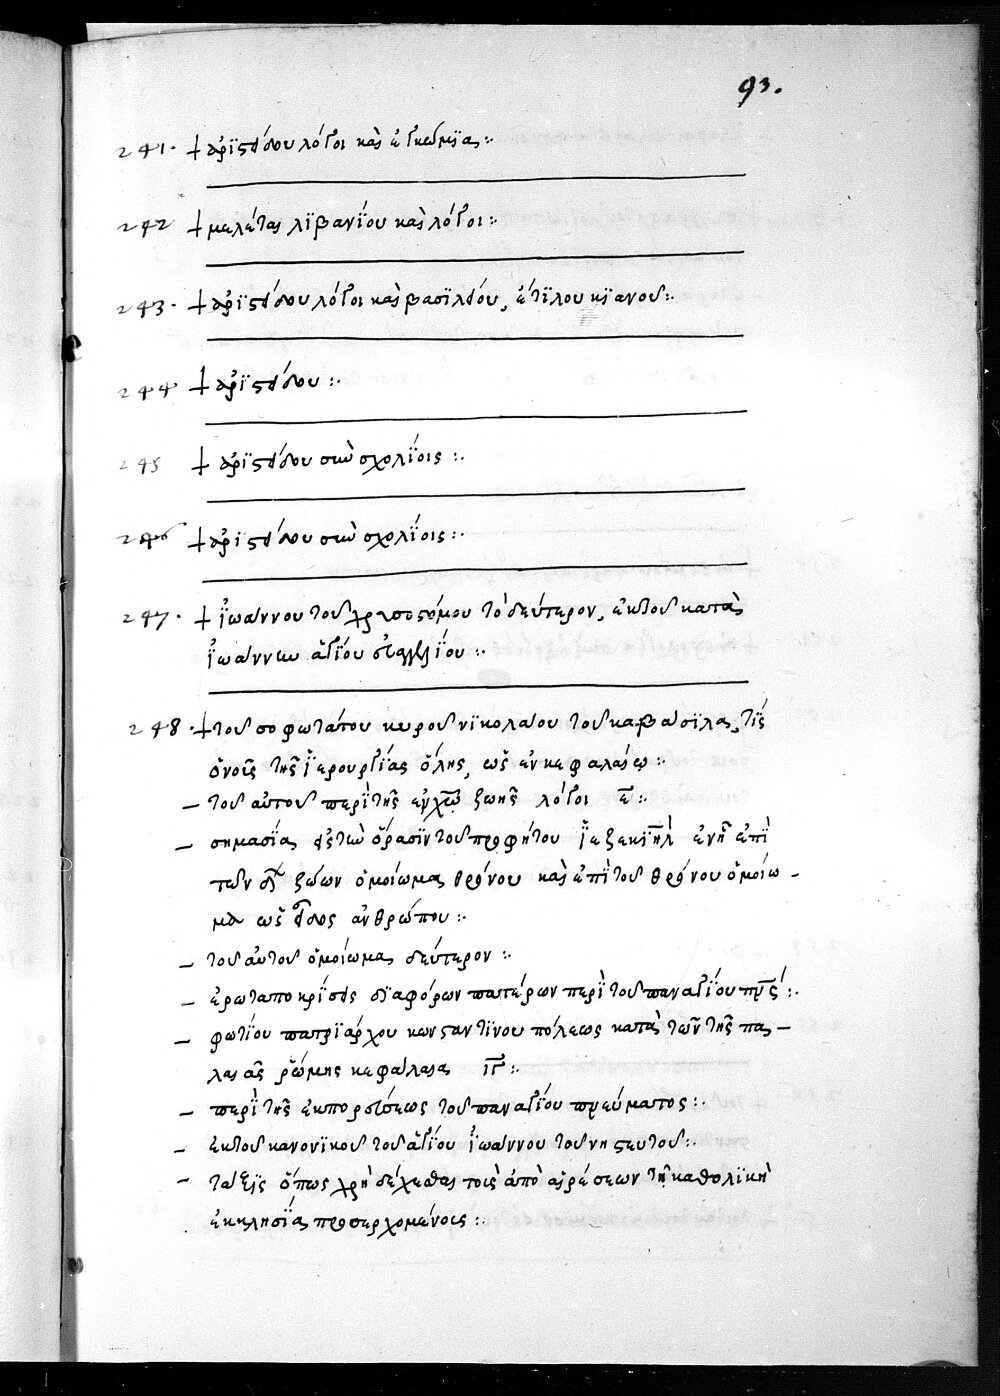 93.
241. + ἀρϊστείδου λόγοι καὶ ἐγκώμϊα :·
242 + μελέται λϊβανΐου καὶ λόγοι :·
243. + ἀρϊστείδου λόγοι καὶ βασϊλείου, ἔτϊ λουκϊανοῦ :·
244 + ἀρϊστείδου :·
245 + ἀρϊστείδου σὺν σχολΐοις :·
246 + ἀρϊστείδου σὺν σχολΐοις :·
247. + ἰωάννου τοῦ χρυσοστόμου τὸ δεύτερον, ἐκ τοῦ κατὰ
ἰωάννην ἁγίου εὐαγγελΐου :·
248. + τοῦ σοφωτάτου κυροῦ νϊκολάου τοῦ καβάσϊλα, τίς
ὁ νοῦς τῆς ἱερουργΐας ὅλης, ὡς ἐν κεφαλαίῳ :·
— τοῦ αὐτοῦ περὶ τῆς ἐν χ̅ω̅ ζωῆς λόγοι ε̅ :·
— σημασΐα εἰς τὴν ὅρασϊν τοῦ προφήτου ἰεζεκϊὴλ ἐν ᾗ ἐπὶ
τῶν δ ζώων ὁμοίωμα θρόνου καὶ ἐπὶ τοῦ θρόνου ὁμοίω-
μα ὡς εἶδος ἀνθρώπου :·
— τοῦ αὐτοῦ ὁμοίωμα δεύτερον :·
— ἐρωταποκρίσεις δϊαφόρων πατέρων περὶ τοῦ παναγΐου π̅ν̅ς̅ :·
— φωτΐου πατρϊάρχου κωνσταντϊνουπόλεως κατὰ τῶν τῆς πα-
λαιᾶς ῥώμης κεφάλαια ι̅γ̅ :·
— περὶ τῆς ἐκπορεύσεως τοῦ παναγΐου πνεύματος :·
— ἐκ τοῦ κανονϊκοῦ τοῦ ἁγΐου ἰωάννου τοῦ νηστευτοῦ :·
— τάξϊς ὅπως χρὴ δέχεσθαι τοὺς ἀπὸ αἱρέσεων τῇ καθολϊκῇ
ἐκκλησΐᾳ προσερχομένους :·